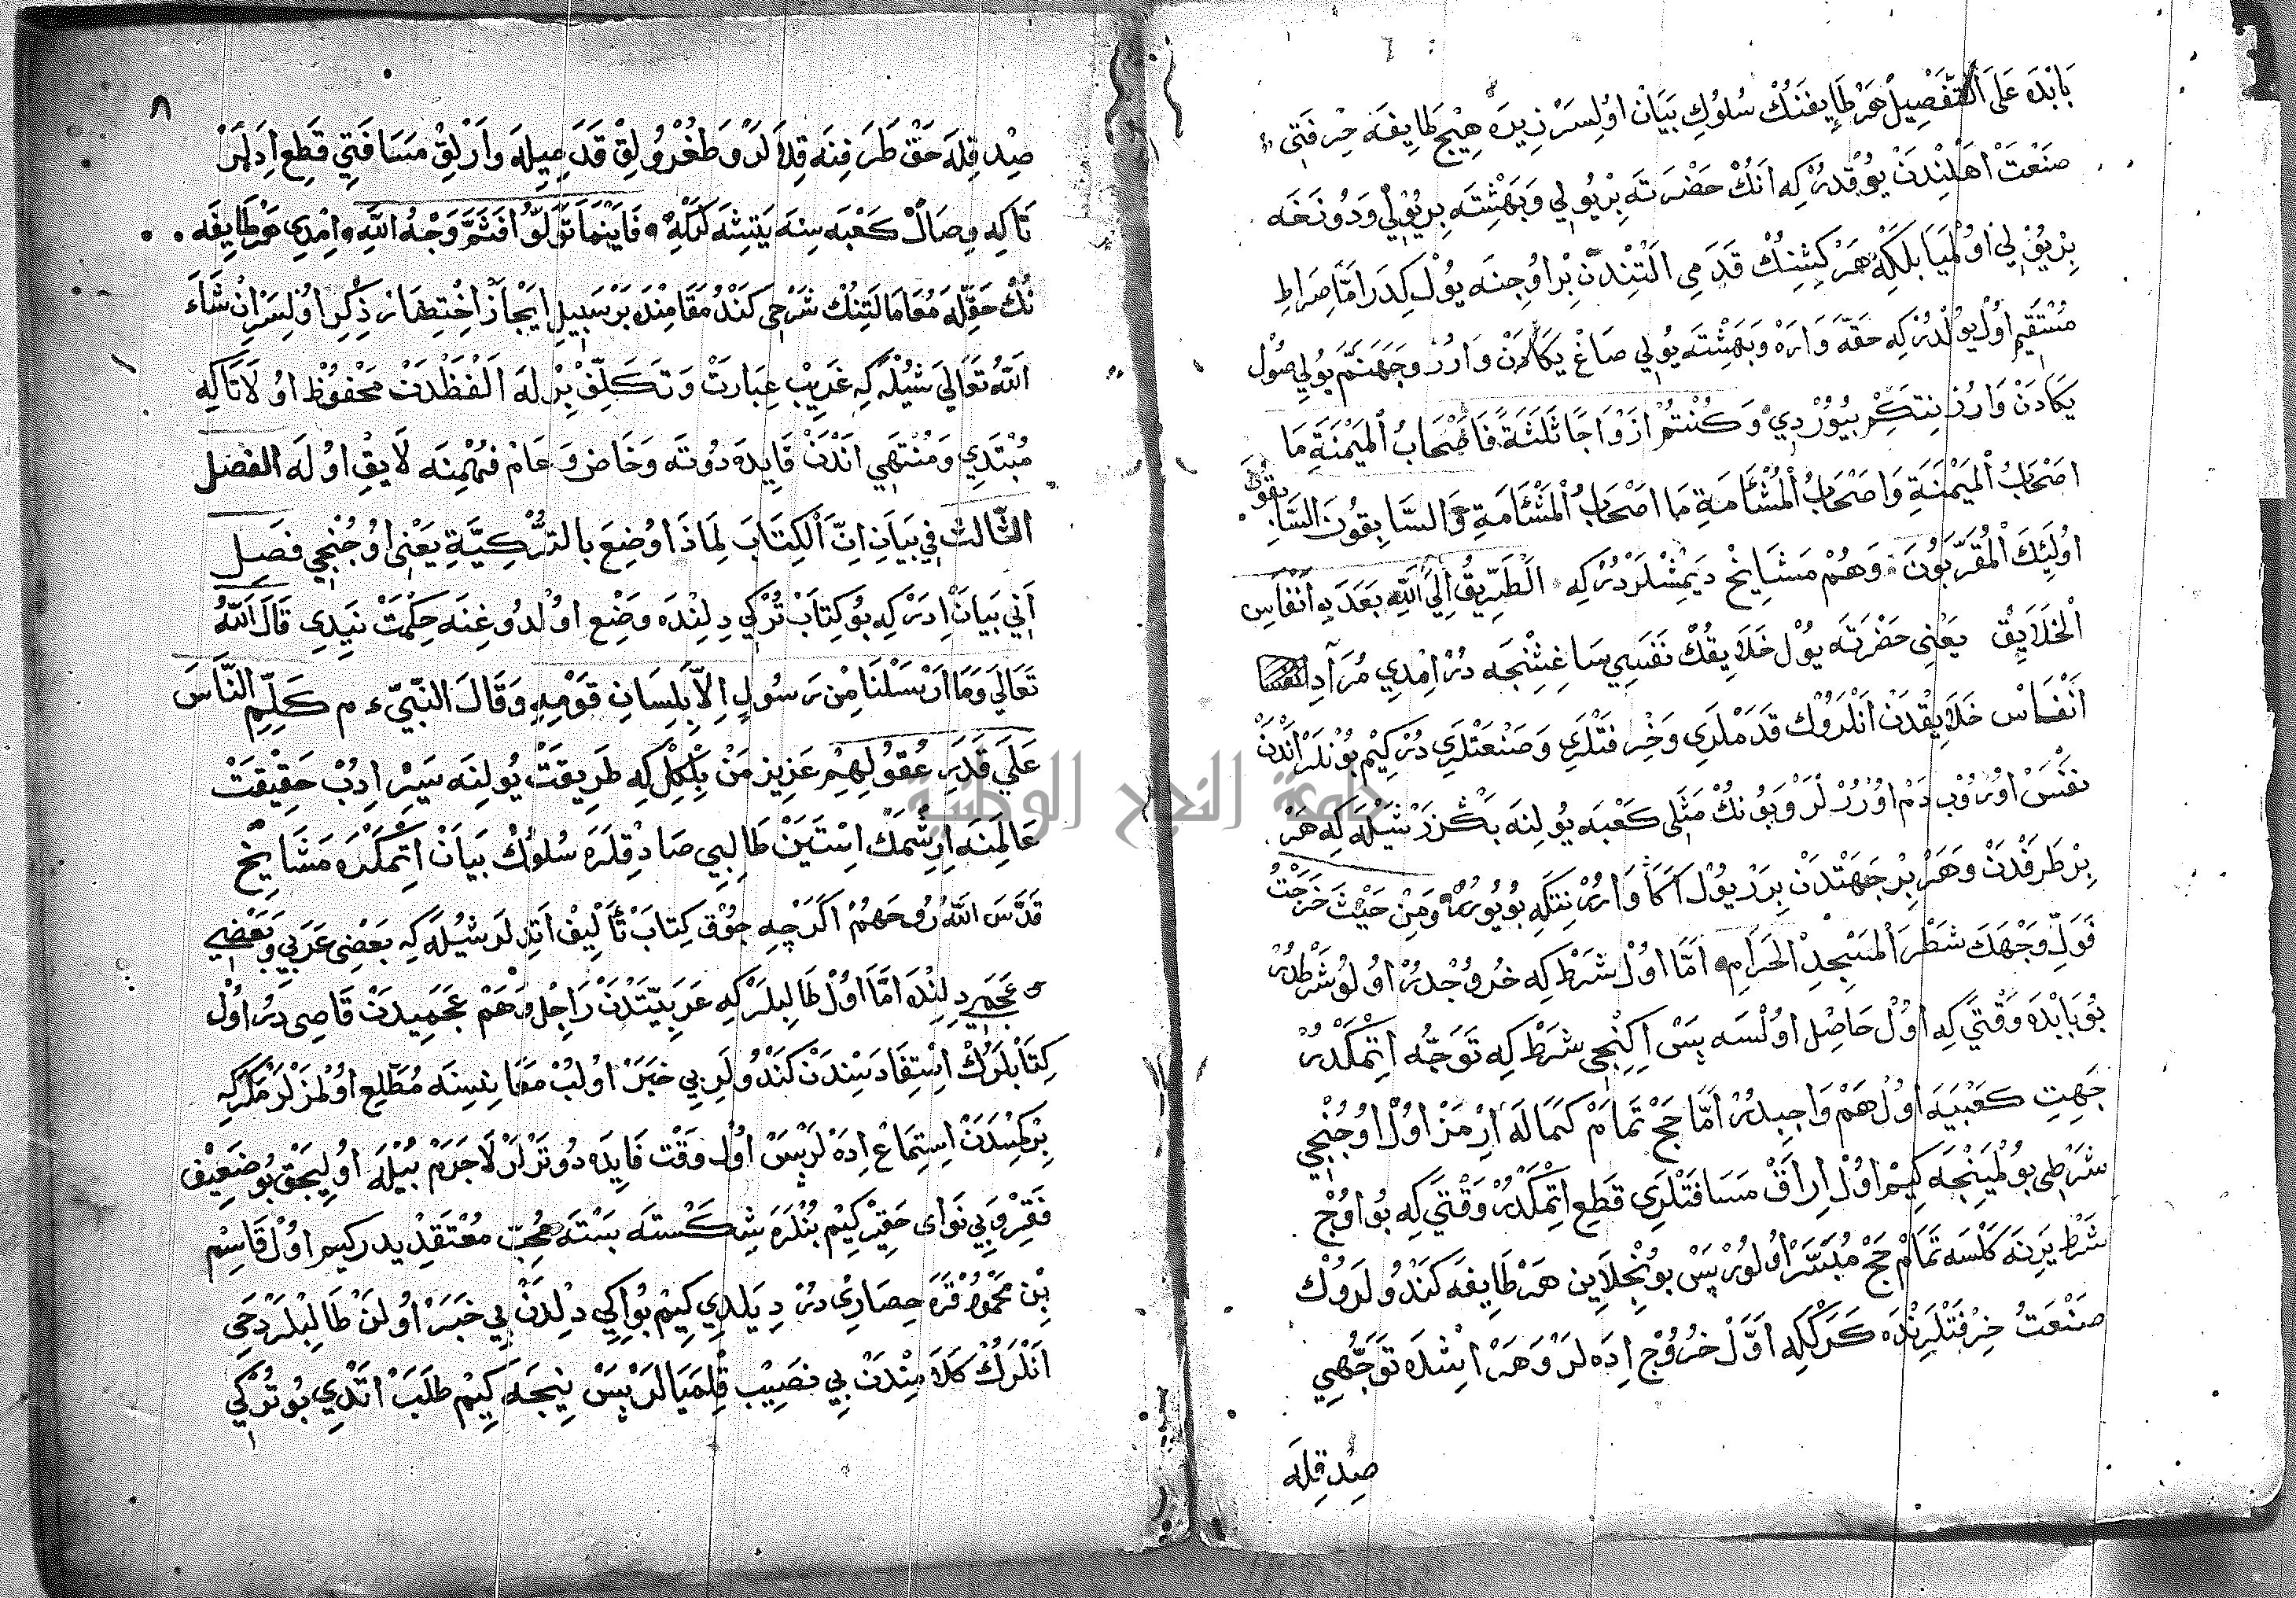 بَابْدَه عَلَى التَّفْصِيلْ هَرْ طَايِفَنُكْ سُلُوكِ بَيَانْ اوُلِسَرْ زِيرَه هِيْچ طَايِفَه حِرْفَتِي
صَنْعَتْ اَهْلِنْدَنْ يُوْقْدُرْ كِه اَنُكْ حَضْرَتَه بِرْ يُولِي وَبَهِشْتَه بِرْ يُوْلِي وَدُونَخَه
بِرْ يُوْلِي اوُلْمَيَا بَلْكِه هَرْ كِشِنِنُكْ قَدَمِي اَلْتِنْدَنْ بِرْ اوُجِنَه يُوْلْ كِدَرْ اَمَّا صِرَاطِ
مُسْتَقِيمِ اوُلْ يُولْدُرْ كِه حَقَّه وَارَه وَبَهِشْتَه يُولِي صَاغْ يَكَادَنْ وَارُرْ وَجَهَنَّمْ يُولِي صُوْلْ
يَكَادَنْ وَارُرْ نِتَكِمْ بُيُوُرْدِي وَكُنْتُمْ اَزْوَاجًا ثَلٰثَةً فَاَصْحَابُ الْمَيْمَنَةِ مَا
اَصْحَابُ الْمَيْمَنَةِ وَاَصْحَابُ الْمَشْئَامَةِ مَا اَصْحَابُ الْمَشْئَامَةِ وَالسَّابِقُونَ السَّابِقُونَ
اوُلٰئِكَ الْمُقَرَّبُونَ وَهُمْ مَشَايِخْ دَيِمْشْلَرْدُرْ كِه الطَّرِيقُ اِلَى اللّٰهِ بَعَدَدِ اَنْفَاسِ
الْخَلَايِقْ يَعْنِى حَضْرَتَه يُوْلْ خَلَايِقُكْ نَفَسِي سَاغِشِنْجَه دُرْ اِمْدِي مُرَآدِ
اَنْفَاسْ خَلَايِقْدَنْ اَنْلَرُوْكْ قَدَمْلَرِي وَحِرْفَتْلَرِي وَصَنْعَتْلَرِي دُرْ كِيْم بُوْنْلَرْ اَنْدَنْ
نَفَسْ اوُرُوْبْ دَمْ اوُرُرْلَرْ وَبُوْنُكْ مَثَلِي كَعْبَه يُولِنَه بَكْزَرْ شَيْلَه كِه هَرْ
بِرْ طَرَفْدَنْ وَهَرْ بِرْ جَهَتْدَنْ بِرَرْ يُوْلْ اَكَا وَارُرْ نِتَكِه بُويُورُرْ وَمِنْ حَيْثُ خَرَجْتَ
فَوَلِّ وَجْهَكَ شَطْرَ الْمَسْجِدِ الْحَرَامِ اَمَّا اوُلْ شَرْط كِه خُرُوُجْدُرْ اوُلُوْ شَرْطدُرْ
بُوْ بَابْدَه وَقْتِي كِه اوُلْ حَاصِلْ اوُلْسَه پَسْ اِكِنْجِي شَرْطْ كِه تَوَجُّه اِتْمَكْدُرْ
جَهَتِ كَعْبَيَه اوُلْ هَمْ وَاجِبْدُرْ اَمَّا حَجْ تَمَامْ كَمَالَه اِرْمَزْ اوُلْ اوُچُنْجِي
شَرْطِي بُوُلْمَيِنْجَه كِيْم اوُلْ اِرَاقْ مَسَافَتْلَرِي قَطِعْ اِتْمَكْدُرْ وَقْتِي كِه بُوْ اوُچْ
شَرْطْ يَرِنَه كَلْسَه تَمَامْ حَجْ مُيَسَّرْ اوُلُورْ پَسْ بُوْنْجِلَايِن هَرْ طَايِفَه كَنْدُولَرُوْكْ
صَنْعَتْ حِرْفَتْلَرِنْدَه كَرَكْ كِه اَوَّلْ خُرُوْجْ اِدَه لَرْ وَهَرْ اِيْشْدَه تَوَجُّهِي
صِدْقِلَه
٨
صِدْقِلَه حَقْ طَرَفِنَه قِلَالَرْ وَطُغْرُولِقْ قَدَمِيلَه وَارْلِقْ مَسَافَتِي قَطِع اِدَلَرْ
تَا كِه وِصَالْ كَعْبَه سِنَه يَتِيشَه لَرْ كِه فَاَيْنَمَا تُوَلُّوُا فَثَمَّ وَجْهُ اللّٰهِ اِمْدِي هَرْ طَايِفَه
نُكْ حَقِّلَه مُعَامَالَتِنُكْ شَرْحِي كَنْدُ مَقَامِنْدَه بَرْ سَبِيلِ اِيجَازْ اِخْتِصَارْ ذِكْرِ اوُلِسَرْ اِنْ شَاءَ
اللّٰهُ تَعَالٰى شُيْلَه كِه غَرِيبْ عِبَارَتْ وَتَكَلُّفْ بِرْلَه اَلْفَظْدَنْ مَحْفُوظْ اوُلَا تَا كِه
مُبْتَدِي وَمُنْتَهِي اَنْدَنْ فَايِدَه دُوتَه وَخَاصْ وَعَامْ فَهْمِنَه لَايِقْ اوُلَه الفصل
الثَّالث فِي بَيَانِ اِنَّ الْكِتَابَ لِمَاذَا وُضِعَ بالتُّرْكِيَّةِ يَعْنِى اوُچُنْجِي فَصِل
اَنِي بَيَانْ اِدَرْ كِه بُوْ كِتَابْ تُرْكِي دِلِنْدَه وَضِعْ اوُلدُوغِنَه حِكْمَتْ نَيَدِي قَالَ اللّٰهُ
تَعَالٰى وَمَا اَرْسَلْنَا مِنْ رَسُولٍ اِلَّا بِلِسَانِ قَوْمِهِ وَقَالَ النَّبِيّ ءم كَلِّمِ النَّاسَ
عَلٰي قَدَرِ عُقُولِهِمْ عَزِيزِ مَنْ بِلْكِلْ كِه طَرِيقَتْ يُولِنَه سَيْرِ اِدُبْ حَقِيقَتْ
عَالَمِنَه اِرِشْمَكْ اِسْتَيَنْ طَالِبِي صَادِقْلَرَه سُلُوكْ بَيَانْ اِتْمَكْدَه مَشَايِخْ
قَدَّسَ اللّٰهُ رُوحَهُمْ اَكَرْچِه چُوْقْ كِتَابْ تَأْلِيفْ اَتدِلَرْ شُيْلَه كِه بَعْضِى عَرَبِي وَبَعْضِي
عَجَمِي دِلِنْدَه اَمَّا اوُلْ طَالِبلَرْ كِه عَرَبِيَّتَدْنْ رَاجِلْ وَهَمْ عَجَمِيدَنْ قَاصِى دُرْ اوُلْ
كِتَابْلَرُكْ اِسْتِفَادَسِنْدَنْ كَنْدُولَرِ بِي خَبَرْ اوُلُبْ مَعَانِيسِنَه مُطَّلِعْ اوُلْمَزْلَرْ مَكَرْ كِه
بِرْ كِمْسَدَنْ اِسْتِمَاعْ اِدَه لَرْ پَسْ اوُلْ وَقْت فَايِدَه دُوتَرْلَرْ لَاجَرَمْ بُيْلَه اوُلِيجَقْ بُوْ ضَعِيْف
فَقِرْ وَبِي نَوَاى حَقِيرْ كِيْم بُنْلَرَه شِكَسْتَه بَسْتَه مُحِبّ مُعْتَقِدْ يدر كِيم اوُلْ قَاسِمْ
بْنِ مَحْمُودْ قَرَه حِصَارِيْ دُرْ دِيَلَدِي كِيْم بُوْ اِكِي دِلْدَنْ بِي خَبَرْ اوُلَنْ طَالِبْلَرْ دَخِي
اَنْلَرُكْ كَلَامِنْدَنْ بِي نَصِيْب قِلْمَيَالَرْ پَسْ نِيجَه كِيْم طَلَبْ اَتْدِي بُوْ تُرْكِي